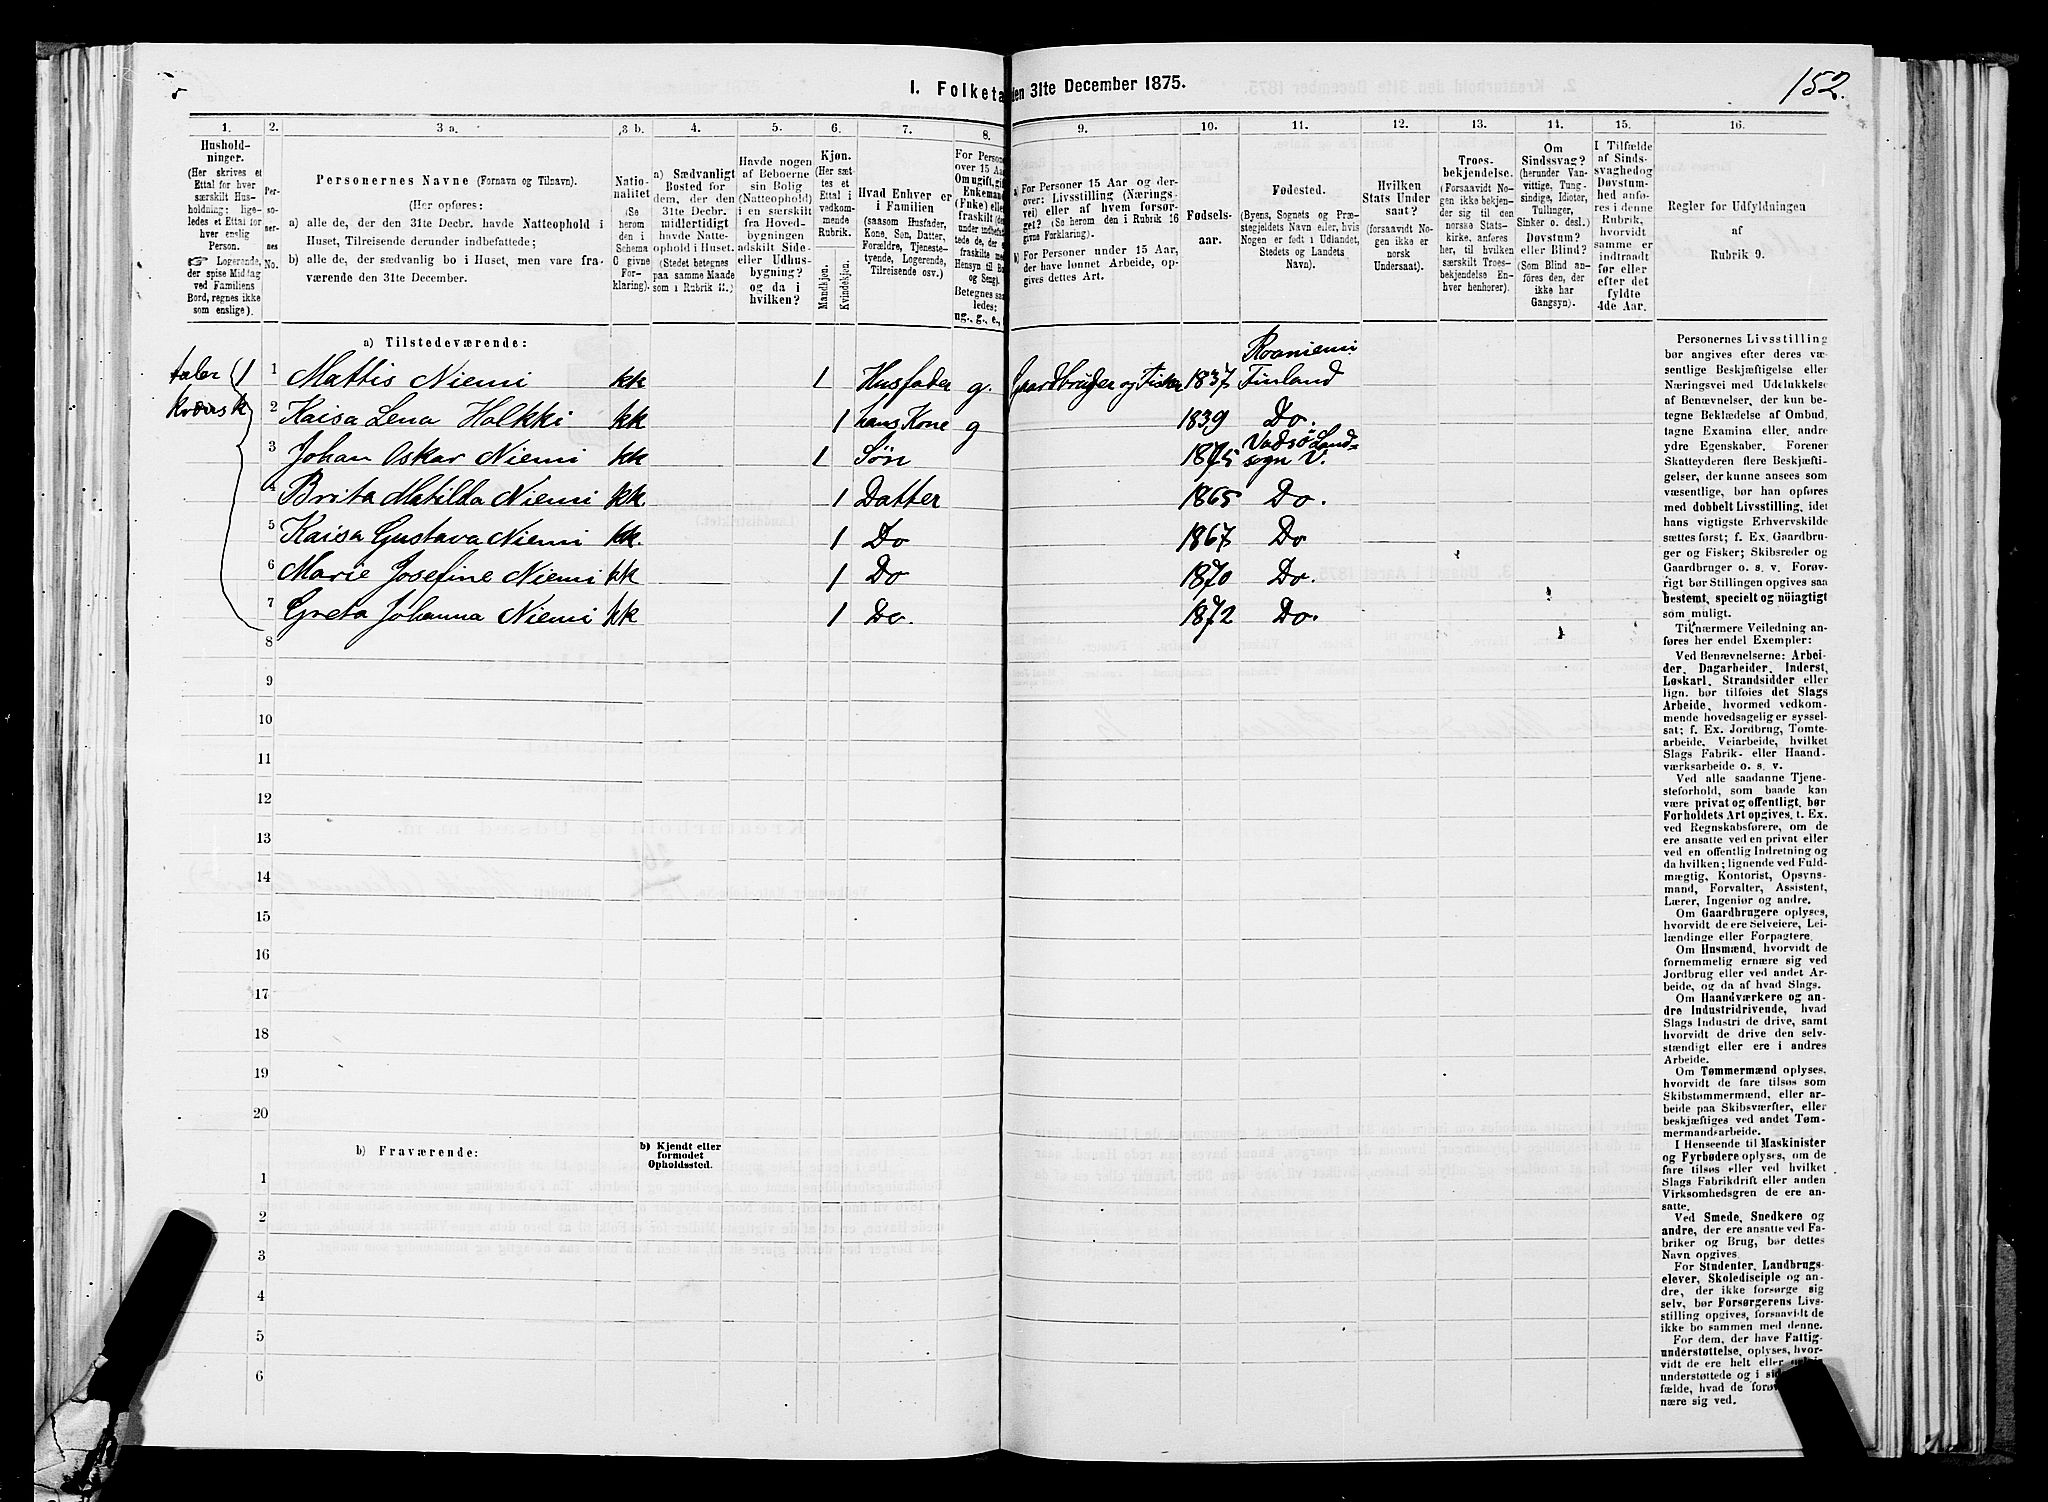 152.
I. Folketa den 31te December 1875.
1. 2. 3 a. 3 b. 4. 5. 6. 7. 8. 9. 10. 11. 12. 13. 14. 15. 16.
Hushold-
ninger.
(Her skrives et
Ettal for hver
særskilt Hus-
holdning; lige-
ledes et Ettal for
hver enslig
Person.
☞ Logerende,
der spise Midtag
ved Familiens
Bord, regnes ikke
som enslige).
Per-
so-
ner-
nes
No.
Personernes Navne (Fornavn og Tilnavn).
(Her opføres:
a) alle de, der den 31te Decbr. havde Natteophold i
Huset, Tilreisende derunder indbefattede;
b) alle de, der sædvanlig bo i Huset, men vare fra-
værende den 31te December.
Natio-
nalitet
(Se
herom
den i
Schema
C givne
For-
klaring).
a) Sædvanligt
Bosted for
dem, der den
31te Decbr.
midlertidigt
havde Natte-
ophold i Huset.
(Stedet betegnes
paa samme Maade
som i Rubrik 11.)
Havde nogen
af Beboerne
sin Bolig
(Natteophold)
i en særskilt
fra Hoved-
bygningen
adskilt Side-
eller Udhus-
bygning?
og da i
hvilken?
Kjøn.
(Her sæt-
tes et
Ettal i
vedkom-
mende
Rubrik.
Mandkjøn.
Kvindekjøn.
Hvad Enhver er
i Familien
(saasom Husfader,
Kone, Søn, Datter,
Forældre, Tjeneste-
tyende, Logerende,
Tilreisende osv.).
For Person
over 15 Aar
Om ugift, gift
Enkemand
(Fnke) eller
fraskilt (de
under indbefat-
tede de, de
fraskilte me
Hensyn til Bo
og Seng).
Betegnes saa
ledes:
ug., g., e.,
a) For Personer 15 Aar og der-
over: Livsstilling (Nærings-
vei) eller af hvem forsør-
get? (Se herom den i Rubrik 16
givne Forklaring).
b) For Personer under 15 Aar,
der have lønnet Arbeide, op-
gives dettes Art.
Fødsels-
aar.
Fødested.
(Byens, Sognets og Præ-
stegjeldets Navn eller, hvis
Nogen er født i Udlandet,
Stedets og Landets
Navn).
Hvilken
Stats Under
saat?
(forsaavidt No-
gen ikke er
norsk
Undersaat).
Troes-
bekjendelse.
(Forsaavidt No-
gen ikke bekjen-
der sig til den
norske Stats-
kirke, anføres
her, til hvilken
særskilt Troes-
bekjendelse En-
hver henhører).
Om
Sindssvag?
(herunder Van-
vittige, Tung-
sindige, Idioter,
Tullinger,
Sinker o. desl.).
Døvstum?
eller Blind?
(Som Blind an-
føres den, der
ikke har
Gangsyn).
I Tilfælde
af Sinds-
svaghed og
Døvstum-
hed anfø-
res i denne
Rubrik,
hvorvidt
samme er
indtraadt
før eller
efter det
fyldte
4de Aar.
Regler for Udfyldningen
af
Rubrik 9.
a) Tilstedeværende:
Roaniemi
taler (1 1 Mattis Niemi kk 1 Husfader g. Gaardbruger og Fisker 1837 Finland
kvænsk 2 Kaisa Lena Halkki kk 1 hans Kone g 1839 Do.
3 Johan Oskar Niemi kk 1 Søn 1875 Vadsö Land-
sogn V.
4 Brita Matilda Niemi kk 1 Datter 1865 Do.
5 Kaisa Gustava Niemi kk. 1 Do 1867 Do
6 Marie Josefine Niemi kk 1 Do 1870 Do.
7 Greta Johanna Niemi kk 1 Do. 1872 Do.
8
9
10
11
12
13
14
15
16
17
18
19
20
b) Fraværende:
b) Kjendt eller
formodet
Opholdssted.
1
2
3
4
5
6
Personernes Livsstilling
bør angives efter deres væ-
sentlige Beskjæftigelse eller
Næringsvei med Udelukkelse
af Benævnelser, der kun be-
tegne Beklædelse af Ombud,
tagne Examina eller andre
ydre Egenskaber. Forener
Skatteyderen flere Beskjæfti-
gelser, der kunne ansees som
væsentlige, bør han opføres
med dobbelt Livsstilling, idet
hans vigtigste Erhvervskilde
sættes først; f. Ex. Gaardbru-
ger og Fisker; Skibsreder og
Gaardbruger o. s. v. Forøv-
rigt bør Stillingen opgives saa
bestemt, specielt og nöiagtigt
som muligt.
Til nærmere Veiledning an-
føres her endel Exempler:
Ved Benævnelserne: Arbei-
der, Dagarbeider, Inderst,
Løskarl, Strandsidder eller
lign. bør tilføies det Slags
Arbeide, hvormed vedkom-
mende hovedsagelig er syssel-
sat; f. Ex. Jordbrug, Tomte-
arbeide, Veiarbeide, hvilket
Slags Fabrik- eller Haand-
værksarbeide o. s. v.
Ved alle saadanne Tjene-
steforhold, som baade kan
være privat og offentligt, bør
Forholdets Art opgives, t. Ex.
ved Regnskabsførere, om de
ere ansatte ved en privat eller
ved en offentlig Indretning og
da hvilken; lignende ved Fuld-
mægtig, Kontorist, Opsyns-
mand, Forvalter, Assistent,
Lærer, Ingeniør og andre.
Om Gaardbrugere oplyses,
hvorvidt de ere Selveiere, Lei-
lændinge eller Forpagtere.
Om Husmænd, hvorvidt de
fornemmelig ernære sig ved
Jordbrug eller ved andet Ar-
beide, og da af hvad Slags.
Om Haandværkere og an-
dre Industridrivende, hvad
Slags Industri de drive, samt
hvorvidt de drive den selv-
stændigt eller ere i andres
Arbeide.
Om Tømmermænd oplyses,
hvorvidt de fare tilsøs som
Skibstømmermænd, eller ar-
beide paa Skibsværfter, eller
beskjæftiges ved andet Tøm-
mermandsarbeide.
I Henseende til Maskinister
og Fyrbødere oplyses, om de
fare tilsøs eller ved hvilket
Slags Fabrikdrift eller anden
Virksomhedsgren de ere an-
satte.
Ved Smede, Snedkere og
andre, der ere ansatte ved Fa-
briker og Brug, bør dettes
Navn opgives.
For Studenter, Landbrugs-
elever, Skoledisciple og an-
dre, der ikke forsørge sig
selv, bør Forsørgerens Livs-
stilling opgives, forsaavidt de
ikke bo sammen med denne.
For dem, der have Fattig-
understøttelse, oplyses, hvor-
vidt de ere helt eller
understøttede og i
fælde, hvad de
nære sig ved.